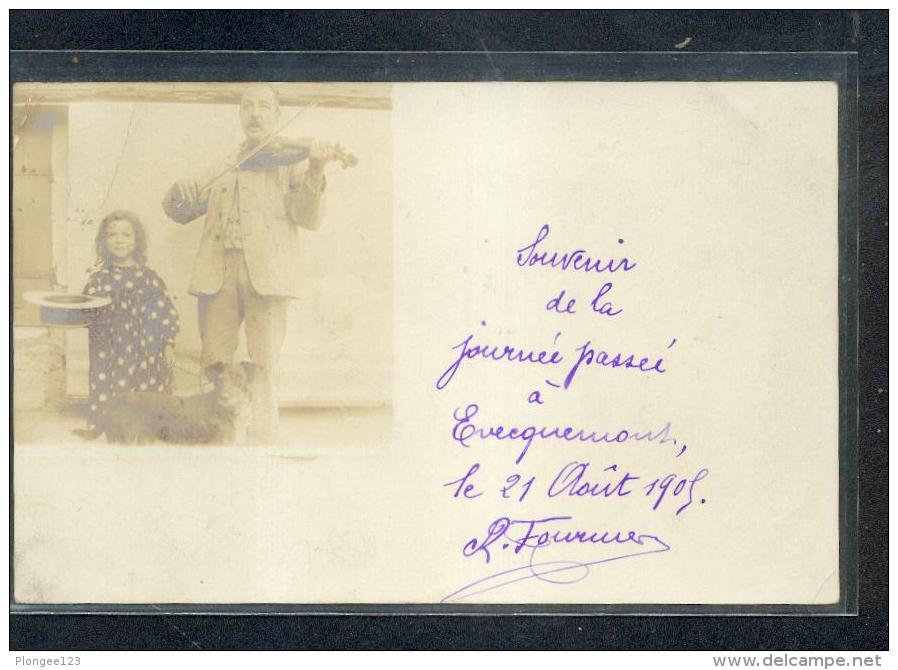 Souvenir
de la
journée passée
à
Evecquemont,
le 21 Août 1905.
R. Fournier
Plongee123
www.delcampe.net